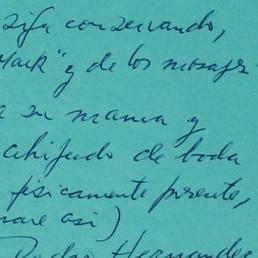 siga conservando,
Mark" y de los mosajes
a su mama y
achijado de boda
fisicamente presente,
asi)
Pedro Hernandez